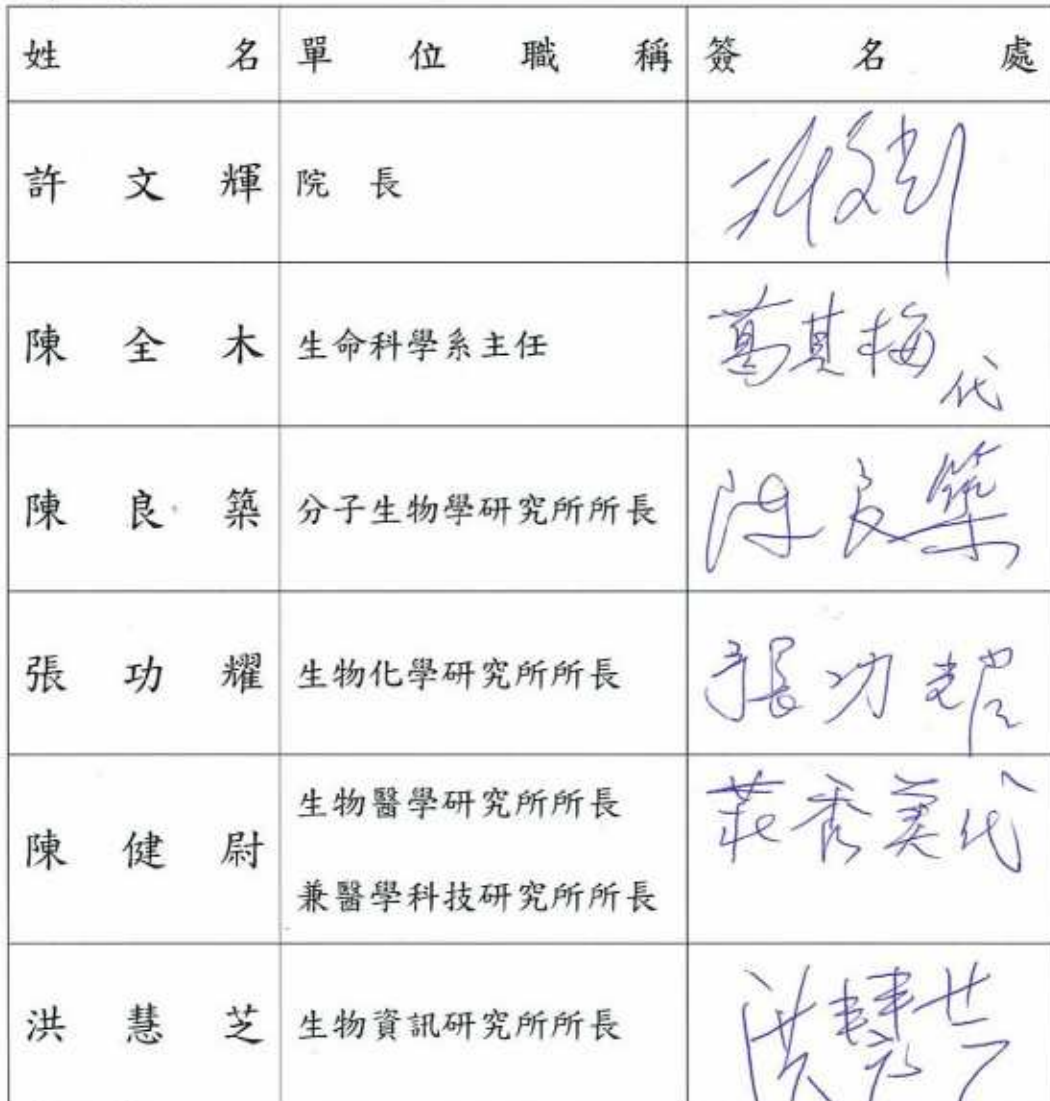 姓名 單位職稱 簽名處
許文輝 院長 許文輝
陳全木 生命科學系主任 葛其梅代
陳良築 分子生物學研究所所長 陳良築
張功耀 生物化學研究所所長 張功耀
陳健尉 生物醫學研究所所長
兼醫學科技研究所所長 莊秀美代
洪慧芝 生物資訊研究所所長 洪慧芝